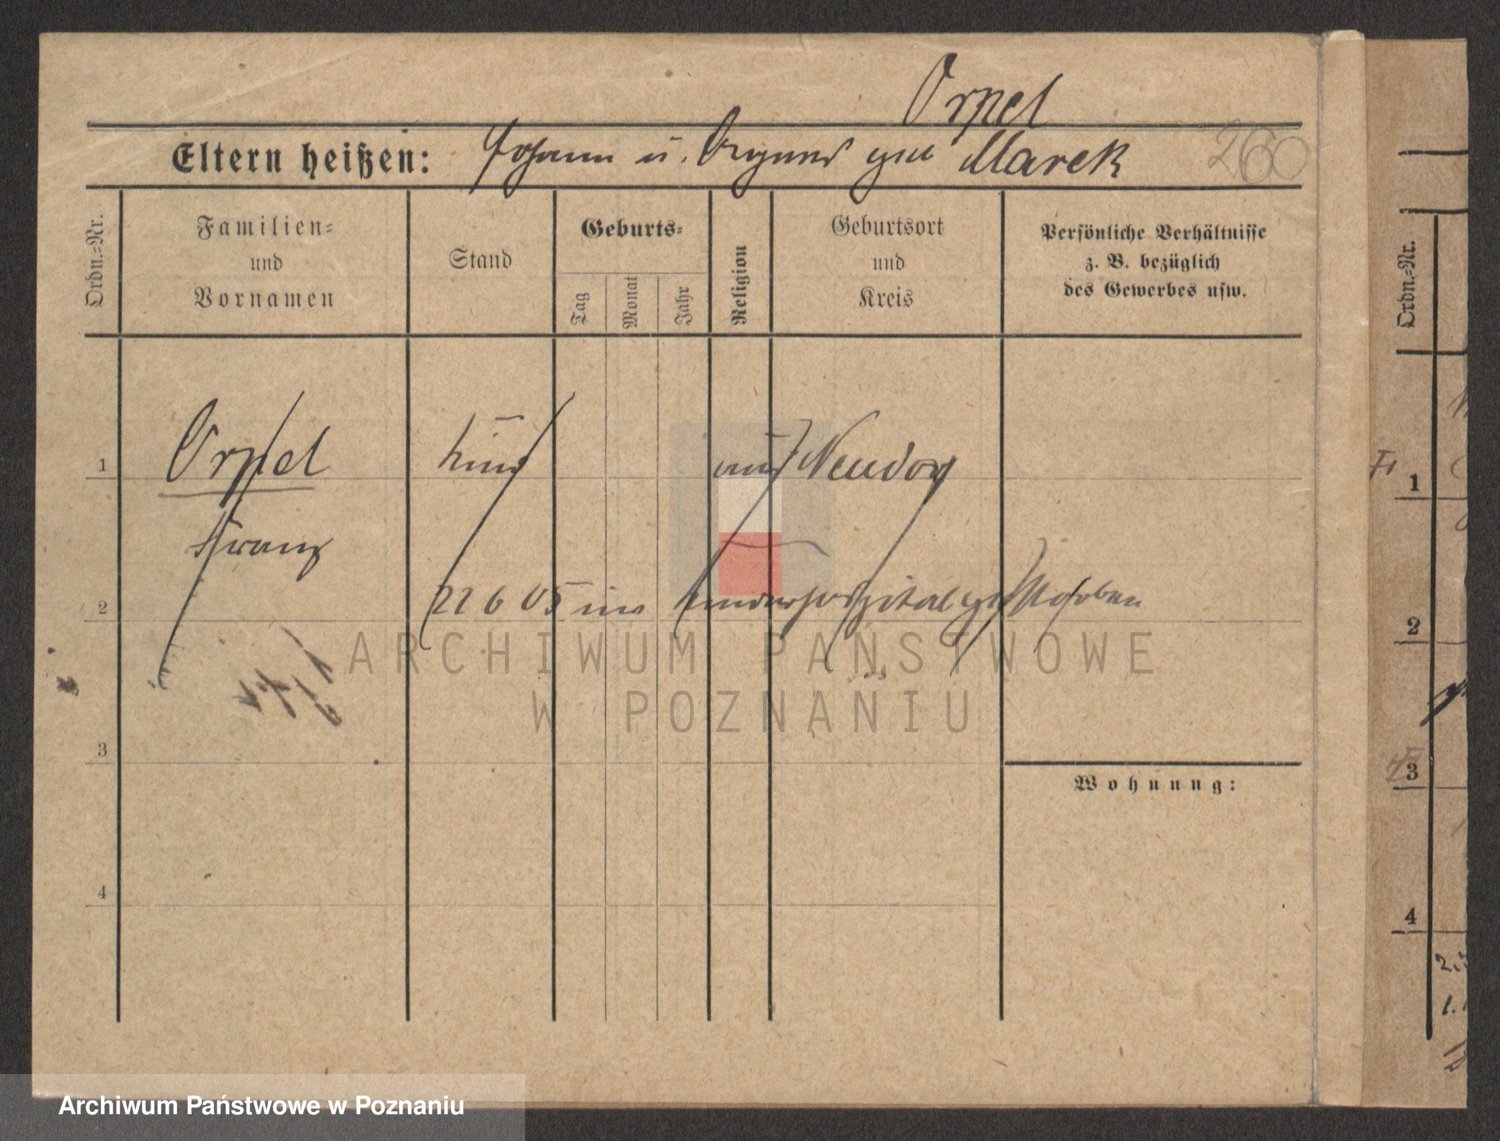 Orpel
Eltern heißen: Johann u. Agnes geb Marek 260
Ordn.=Nr.
Familien=
und
Vornamen
Stand
Geburts=
Tag
Monat
Jahr
Religion
Geburtsort
und
Kreis
Persönliche Verhältnisse
z. B. bezüglich
des Gewerbes usw.
1 Orpel Kind aus Neudorf
Franz
2 22 6 05 ins Kinderhospital gestorben
3
Wohnung:
4
Ordn.=Nr.
1
2
3
4
ARCHIWUM PAŃSTWOWE
W POZNANIU
Archiwum Państwowe w Poznaniu